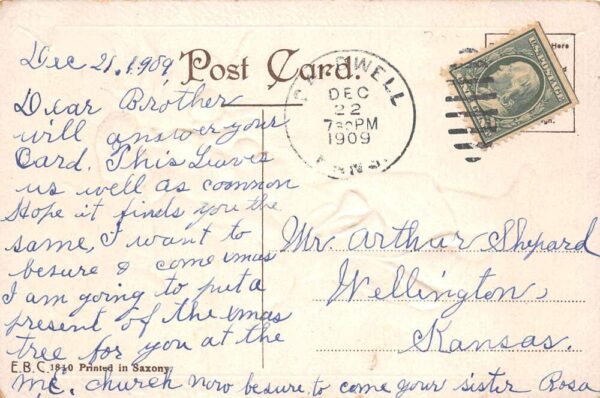 Dec 21, 1909,
Post Card.
Dear Brother
will answer your
Card. This Leaves
us well as common
Hope it finds you the
same, I want to
besure & come xmas
I am going to put a
present of the xmas
tree for you at the
M.E. church now besure to come your sister Rosa
E.B.C. 1810 Printed in Saxony
WELL
DEC
22
7 PM
1909
KANS.
U.S. POSTAGE
Here
Mr. Arthur Shepard
Wellington,
Kansas.